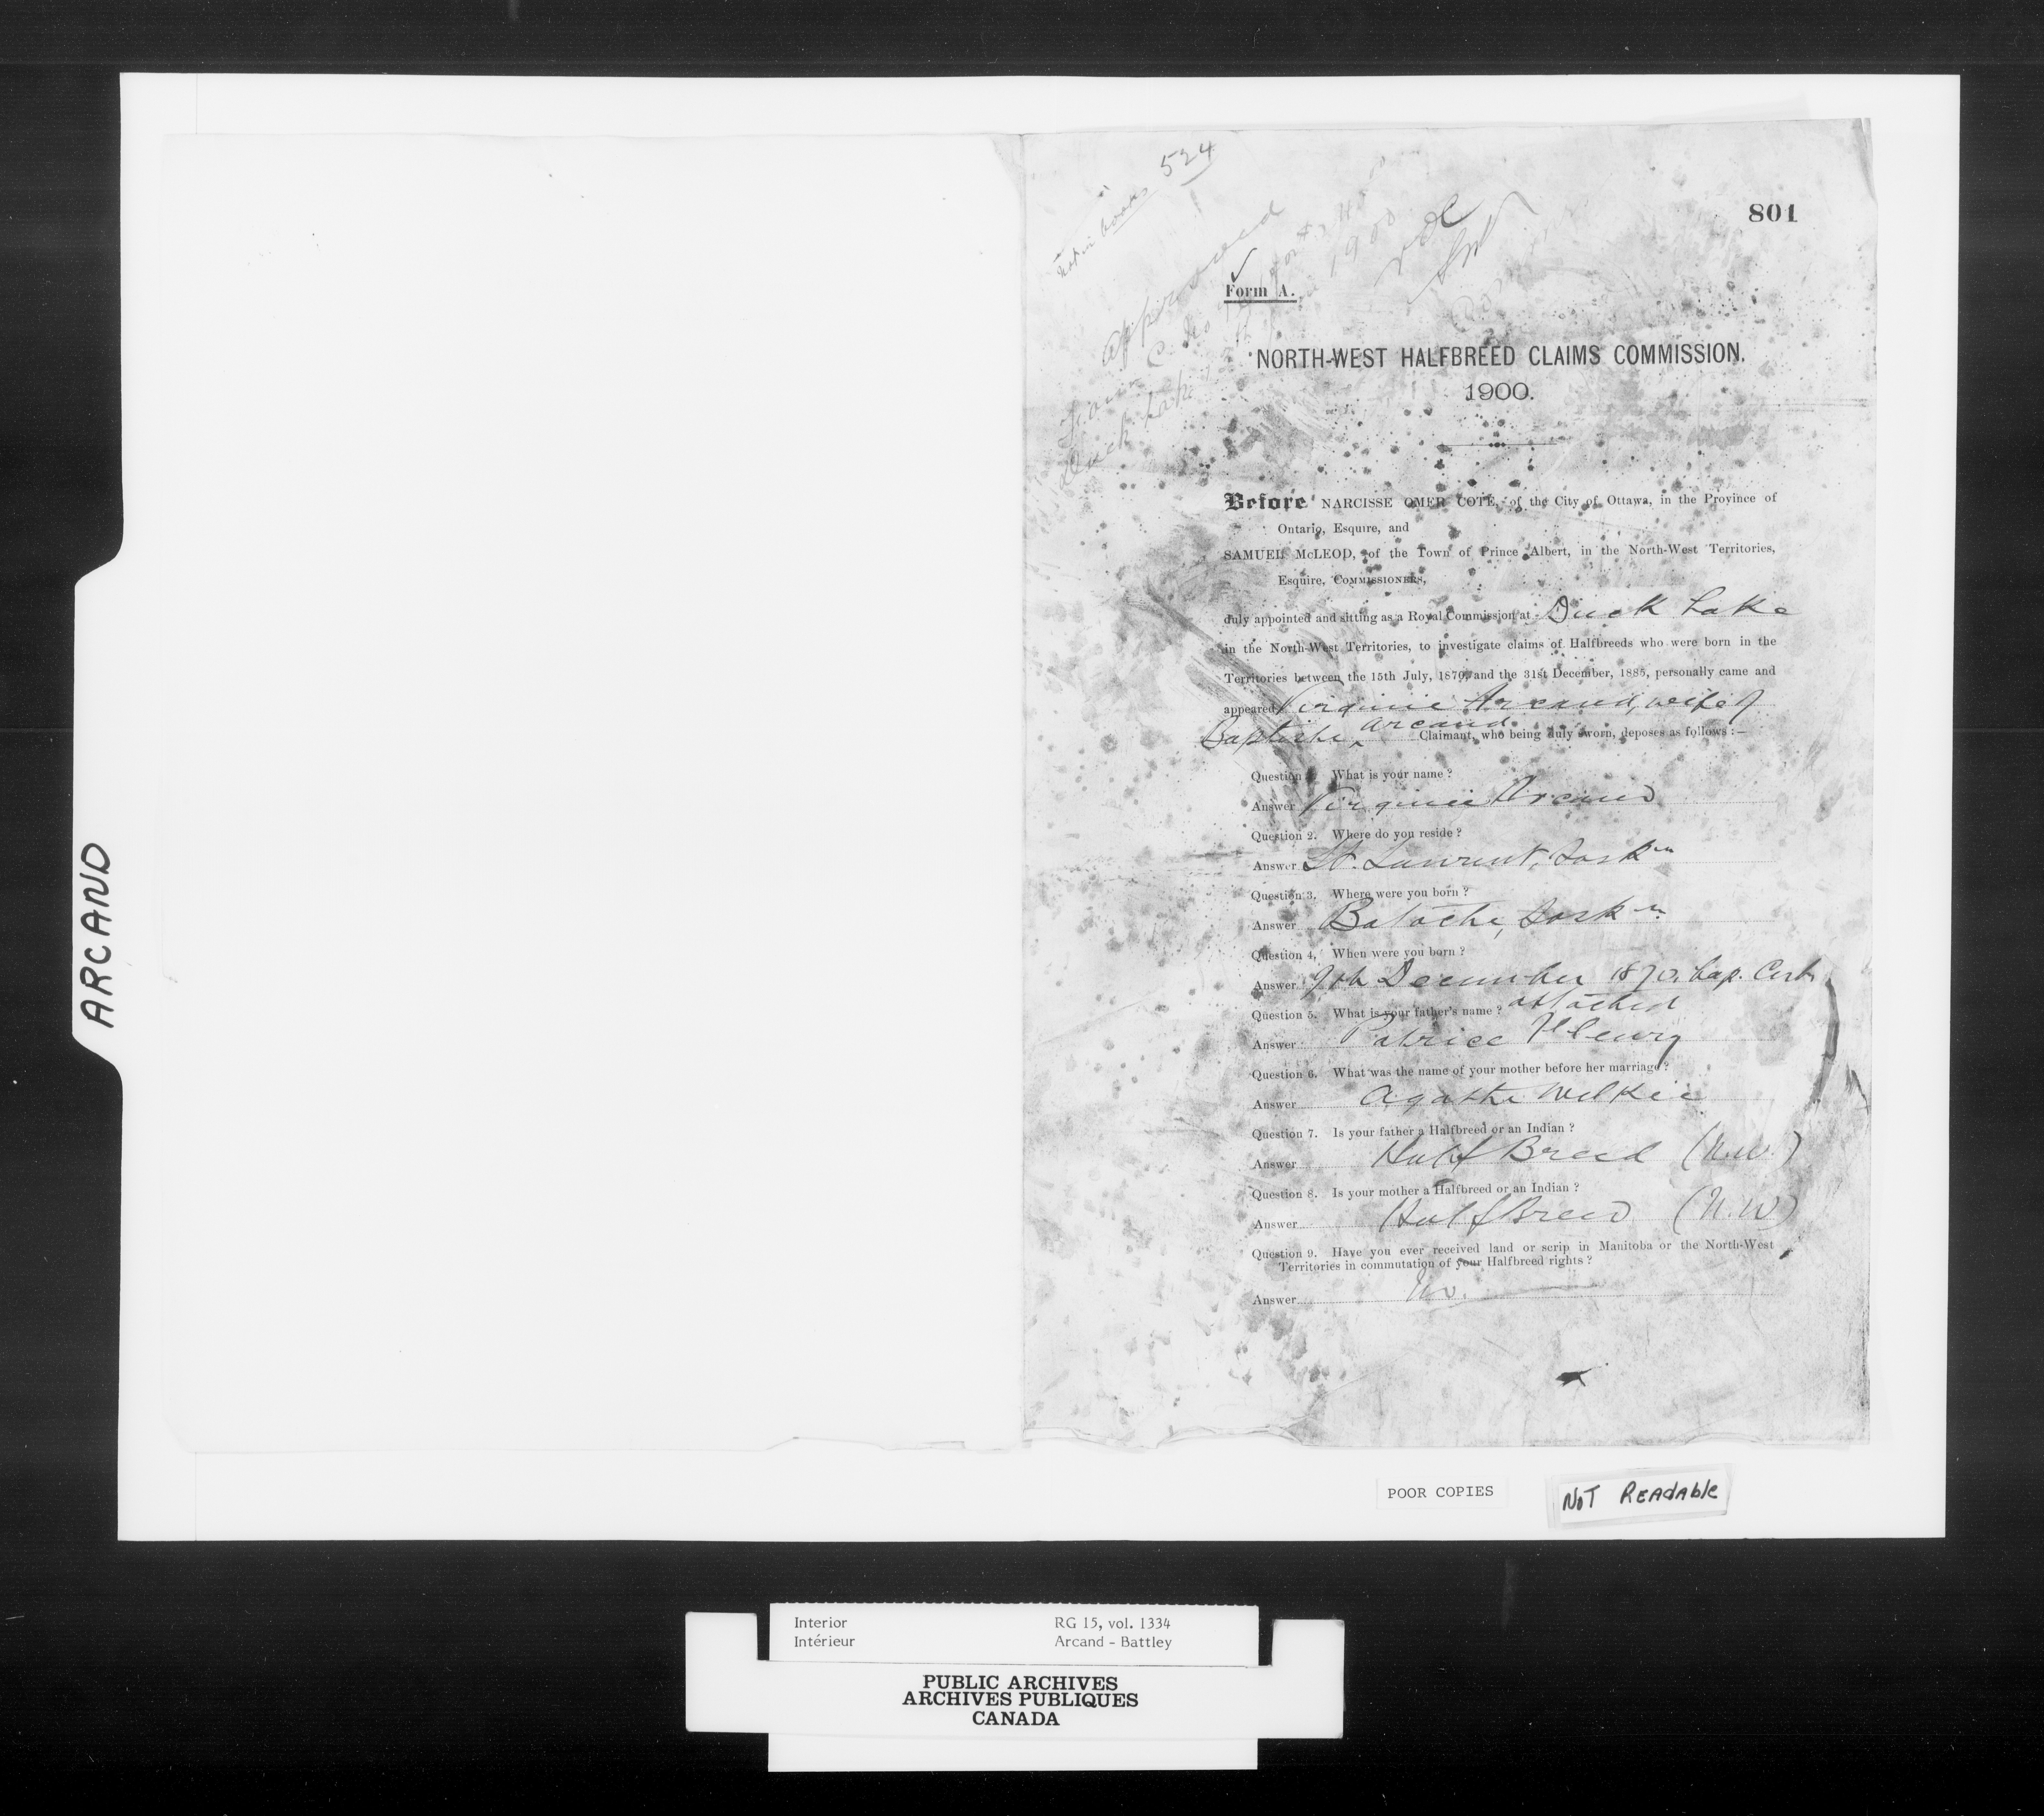 ARCAND
not in books 524
approved
Form C. No
Duck Lake
1900
801
Form A.
NORTH-WEST HALFBREED CLAIMS COMMISSION.
1900.
Before NARCISSE OMER COTE, of the City of Ottawa, in the Province of
Ontario, Esquire, and
SAMUEL McLEOD, of the Town of Prince Albert, in the North-West Territories,
Esquire, COMMISSIONERS,
duly appointed and sitting as a Royal Commission at Duck Lake
in the North-West Territories, to investigate claims of Halfbreeds who were born in the
Territories between the 15th July, 1870, and the 31st December, 1885, personally came and
appeared Virginie Arcand, wife of
Baptiste ^ Arcand Claimant, who being duly sworn, deposes as follows :—
Question 1. What is your name ?
Answer Virginie Arcand
Question 2. Where do you reside ?
Answer St. Laurent, Sask n
Question 3. Where were you born ?
Answer Batoche, Sask n
Question 4, When were you born ?
Answer 9th December 1870. bap. Cert.
attached
Question 5. What is your father's name ?
Answer Patrice Fleury
Question 6. What was the name of your mother before her marriage ?
Answer Agathe Wilkie
Question 7. Is your father a Halfbreed or an Indian ?
Answer Half Breed (N.W.)
Question 8. Is your mother a Halfbreed or an Indian ?
Answer Half Breed (N.W)
Question 9. Have you ever received land or scrip in Manitoba or the North-West
Territories in commutation of your Halfbreed rights ?
Answer No.
POOR COPIES
NOT READABLE
Interior RG 15, vol. 1334
Intérieur Arcand - Battley
PUBLIC ARCHIVES
ARCHIVES PUBLIQUES
CANADA